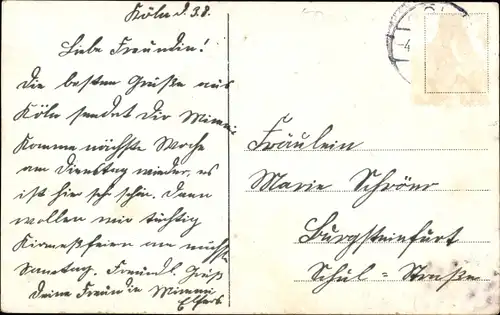 Köln d. 3.8.
Liebe Freundin!
Die besten Grüße aus
Köln sendet Dir Mimmi
Komme nächste Woche
am Dienstag wieder, es
ist hier sehr schön. Dann
wollen wir tüchtig
Kirmeßfeiern am nächste
Sonntag. Freundl. Gruß
Deine Freundin Mimmi
Elfers
Fräulein
Marie Schröer
Burgsteinfurt
Schul=Straße